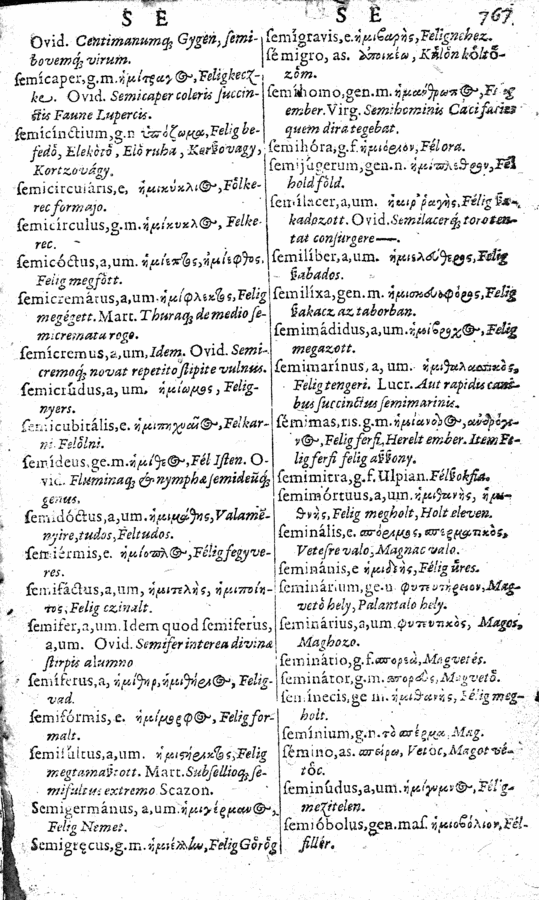 S E
Ovid. Centimanumq; Gygen, semi-
bovemq; virum.
semícaper, g.m. ἡμίτραγ⊕, Felig kecz-
ke. Ovid. Semicaper coleris succin-
ctis Faune Lupercis.
semicínctium, g.n ὑπόζωμα, Felig be-
fedö, Elekötö, Elö ruha, Kersovagy,
Kortzovágy.
semicirculáris, e, ἡμικύκλι⊕, Fölke-
rec formajo.
semicírculus, g.m. ἡμίκυκλ⊕, Felke-
rec.
semicóctus, a, um. ἡμίεπτος, ἡμίεφθος,
Felig megsött.
semicremátus, a, um. ἡμίφλεκτος, Felig
megégett. Mart. Thuraq; de medio se-
micremata rogo.
semícremus, a, um, Idem. Ovid. Semi-
cremoq; novat repetito stipite vulnus.
semicrúdus, a, um. ἡμίωμος, Felig-
nyers.
semicubitális, e. ἡμιπηχυαῖ⊕, Felkar-
ni Felölni.
semídeus, ge.m. ἡμίθε⊕, Fél Isten. O-
vid. Fluminaq; & nymphæ semideûq;
genus.
semidóctus, a, um. ἡμιμαθης, Valamē-
nyire, tudos, Feltudos.
semiérmis, e. ἡμίοπλ⊕, Félig fegyve-
res.
semifáctus, a, um, ἡμιτελὴς, ἡμιποίη-
τος, Felig czinalt.
semifer, a, um. Idem quod semiferus,
a, um. Ovid. Semifer interea divinæ
stirpis alumno
semíferus, a, ἡμίθηρ, ἡμιθήρι⊕, Felig-
vad.
semifórmis, e. ἡμίμορφ⊕, Felig for-
malt.
semifultus, a, um. ἡμιστήρικτος, Felig
megtamasztott. Mart. Subsellioq; se-
mifultus extremo Scazon.
Semigermánus, a, um. ἡμιγέρμαν⊕,
Felig Nemet.
Semigręcus, g.m. ἡμιέλλω, Felig Görög
S E 767
semígravis, e. ἡμιβαρὴς, Felig nehez.
sémigro, as. ἀποικέω, Külön költö-
zöm.
semíhomo, gen.m. ἡμιάνθρωπ⊕, Félig
ember. Virg. Semihominis Caci facies
quem dira tegebat.
semihóra, g.f. ἡμιόριον, Fél ora.
semijúgerum, gen.n. ἡμιπλεθρον, Fél
hold föld.
semílacer, a, um. ἡμιρραγὴς, Félig sza-
kadozott. Ovid. Semilacerq; toro ten-
tat consurgere—.
semilíber, a, um. ἡμιελεύθερος, Felig
szabados.
semilíxa, gen.m. ἡμισκευοφόρος, Felig
szakacz az taborban.
semimádidus, a, um. ἡμίβροχ⊕, Felig
megazott.
semimarínus, a, um. ἡμιθαλασσικὸς,
Felig tengeri. Lucr. Aut rapidis cani-
bus succinctus semimarinis.
sémimas, ris. g.m. ἡμίανδρ⊕, ἀνδρόγυ-
ν⊕, Felig ferfi, Herelt ember. Item Fe-
lig ferfi felig aszszony.
semimitra, g.f. Ulpian. Félszokfia.
semimórtuus, a, um. ἡμιθανὴς, ἡμι-
θνὴς, Felig megholt, Holt eleven.
seminális, e. σπόριμος, σπερματικὸς,
Vetesre valo, Magnac valo.
seminánis, e ἡμιδεὴς, Félig üres.
seminárium, ge.n. φυτευτήριον, Mag-
vetö hely, Palantalo hely.
seminárius, a, um. φυτευτικὸς, Magos,
Maghozo.
seminátio, g.f. σπορεὰ, Magvetés.
seminátor, g.m. σπορεὺς, Magvetö.
seminecis, ge m. ἡμιθανὴς, Félig meg-
holt.
semínium, g.n. τὸ σπέρμα, Mag.
sémino, as. σπείρω, Vetöc, Magot vé-
töc.
seminúdus, a, um. ἡμίγυμν⊕, Félig-
mezitelen.
semióbolus, gen. mas. ἡμιοβόλιον, Fél-
fillér.